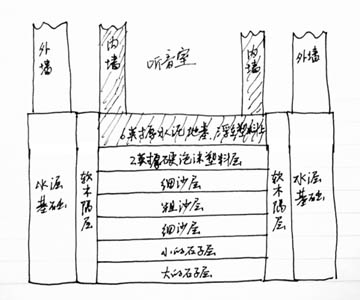 外墙
内墙
听音室
内墙
外墙
6英擂水泥地基,浮在塑料上
2英擂硬泡沫塑料层
细沙层
粗沙层
细沙层
小的石子层
大的石子层
水泥基础
软木隔层
软木隔层
水泥基础